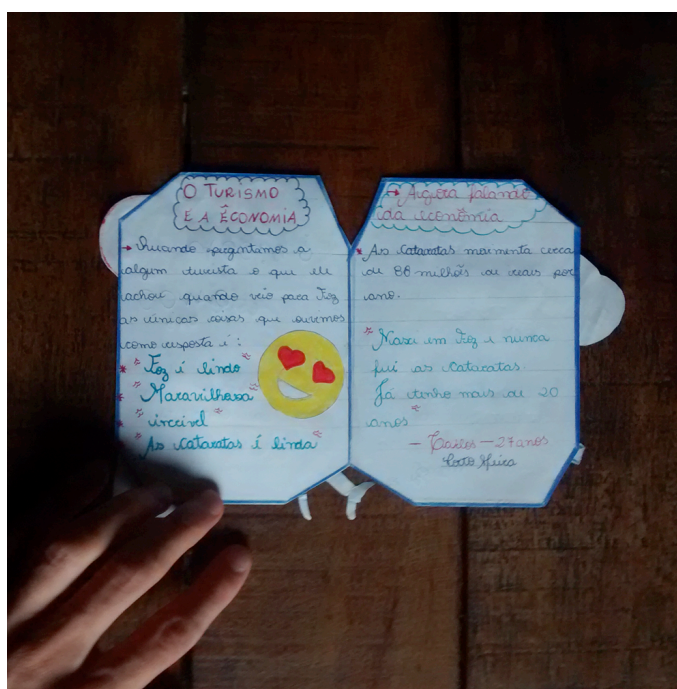 O TURISMO
E A ÊCONOMIA
→ Quando pegintamos a
algum turista o que ele
achou quando veio para Foz
as únicas coisas que ouvimos
como resposta é:
* "Foz é lindo"
* "Maravilhosa"
* "incrivel"
* "As Cataratas é linda"
→ Agora falando
da economia
* As Cataratas movimenta cerca
de 86 milhões de reais por
ano.
"Nasci em Foz e nunca
fui as Cataratas
Já tenho mais de 20
anos"
— Carlos — 27 anos
Porto Meira